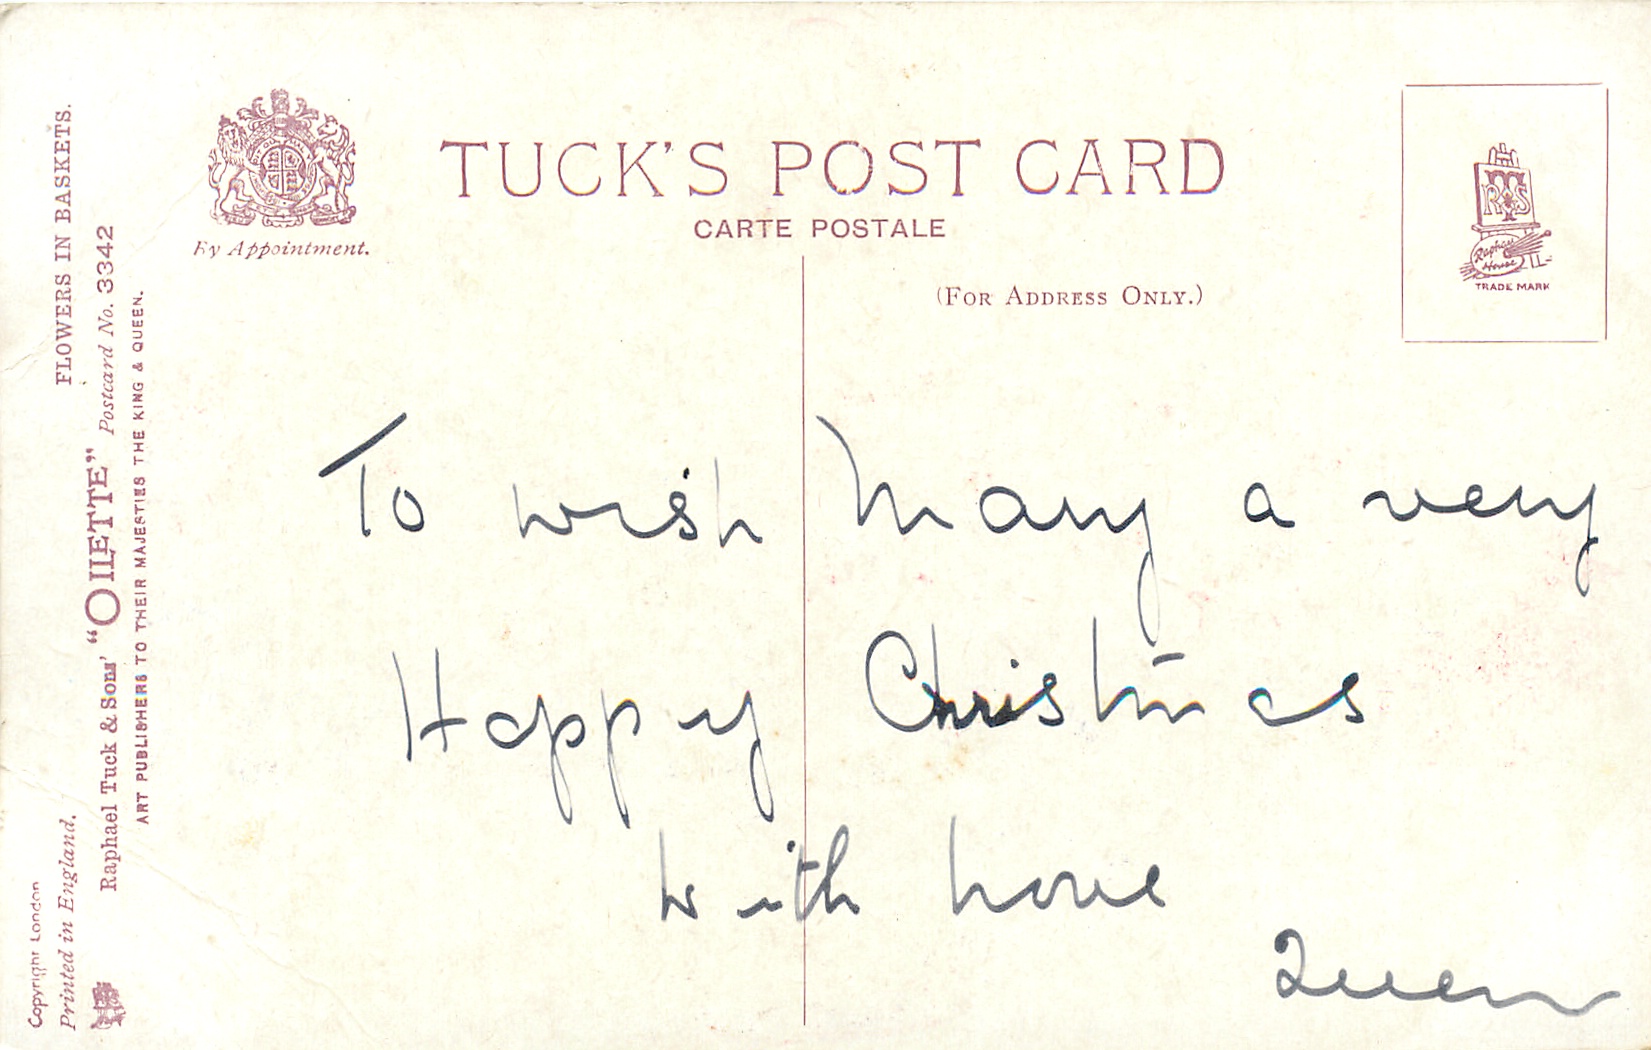 TUCK'S POST CARD
CARTE POSTALE
By Appointment.
(FOR ADDRESS ONLY.)
RTS
Raphael
House
TRADE MARK
FLOWERS IN BASKETS.
Raphael Tuck & Sons' "OILETTE" Postcard No. 3342
ART PUBLISHERS TO THEIR MAJESTIES THE KING & QUEEN.
Copyright London
Printed in England.
To wish Mary a very
Happy Christmas
with love